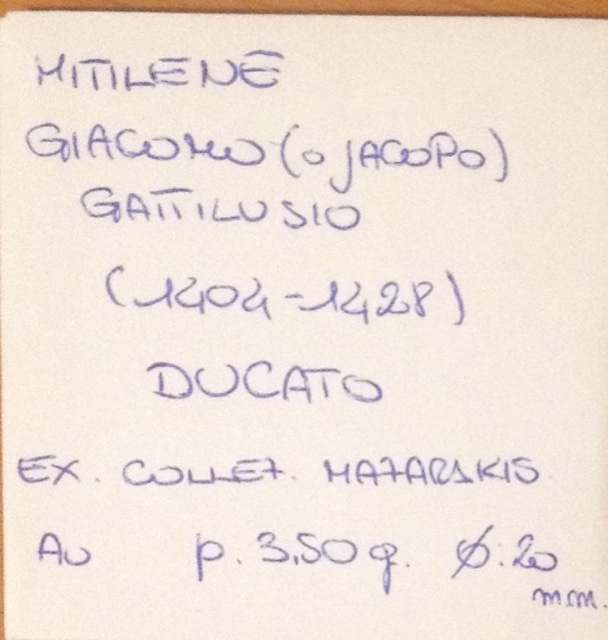 MITILENĒ
GIACOMO (o JACOPO)
GATTILUSIO
(1404-1428)
DUCATO
EX. COLLEZ.
Au p. 3,50 g. Ø: 20
mm.